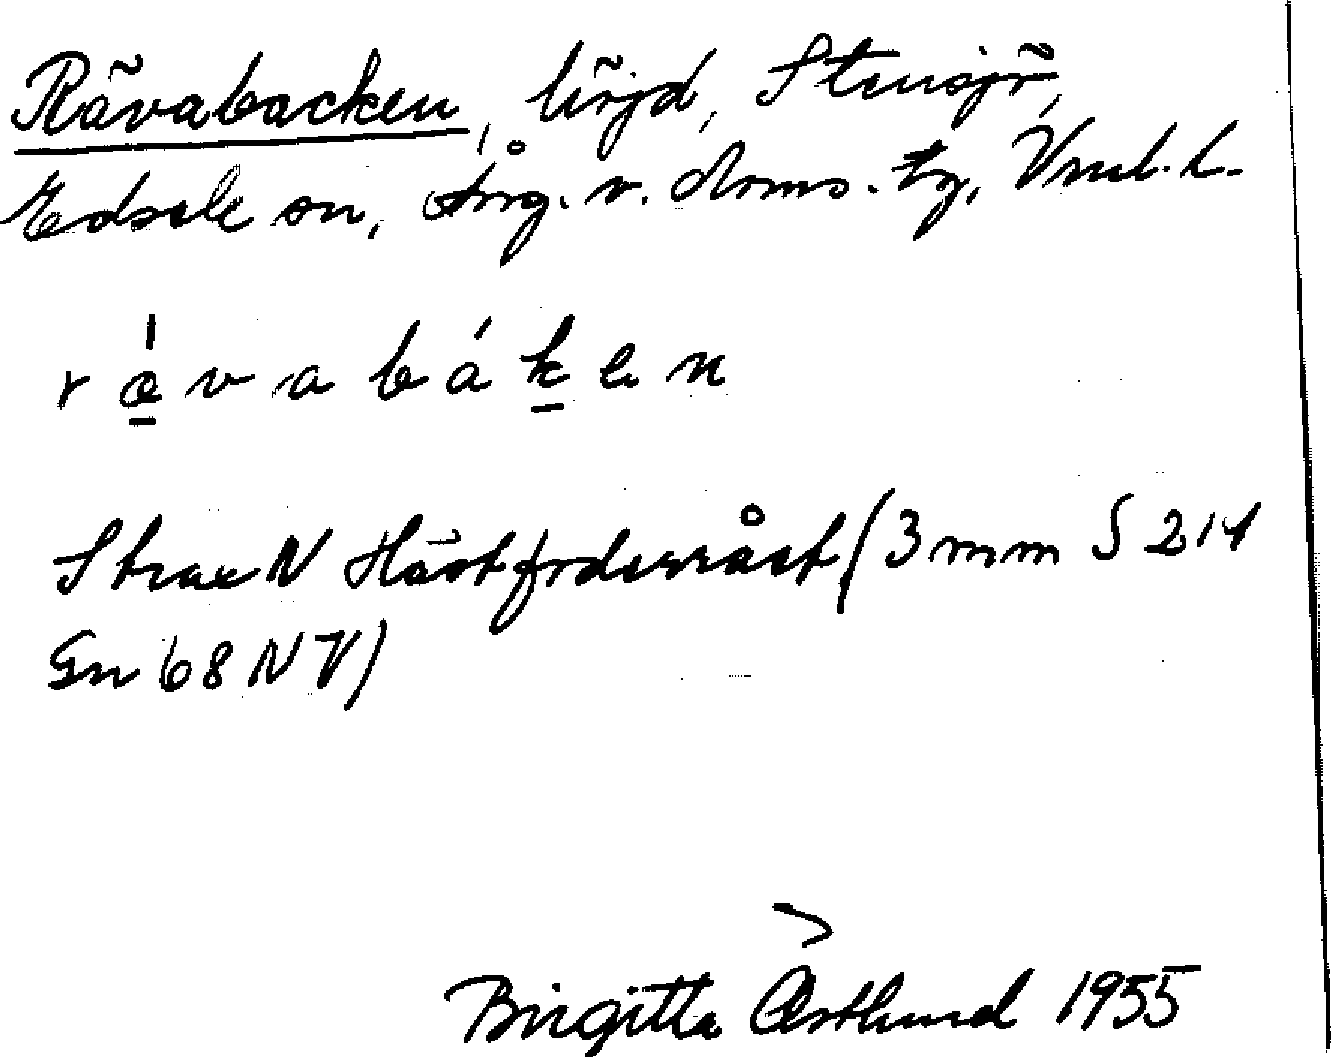 Rävabacken, höjd, Stensjö,
Edsele sn, Ång. v. doms. tg, Vnl. l.
r ǫ́ v a b á k̠ e n
Strax N Hästfoderråset (3 mm S 214
Gn 68 NV)
Birgitta Östlund 1955